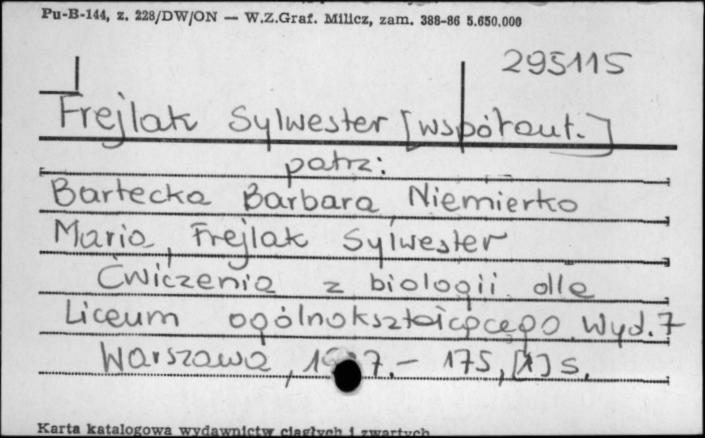 Pu-B-144, z. 228/DW/ON — W.Z.Graf. Milicz, zam. 388-86 5.650.000
295115
Frejlak Sylwester [współaut.]
patrz:
Bartecka Barbara, Niemierko
Maria, Frejlak Sylwester
Ćwiczenia z biologii dla
Liceum ogólnokształcącego. Wyd. 7
Warszawa, 1987.- 175, [1] s.
Karta katalogowa wydawnictw ciągłych i zwartych